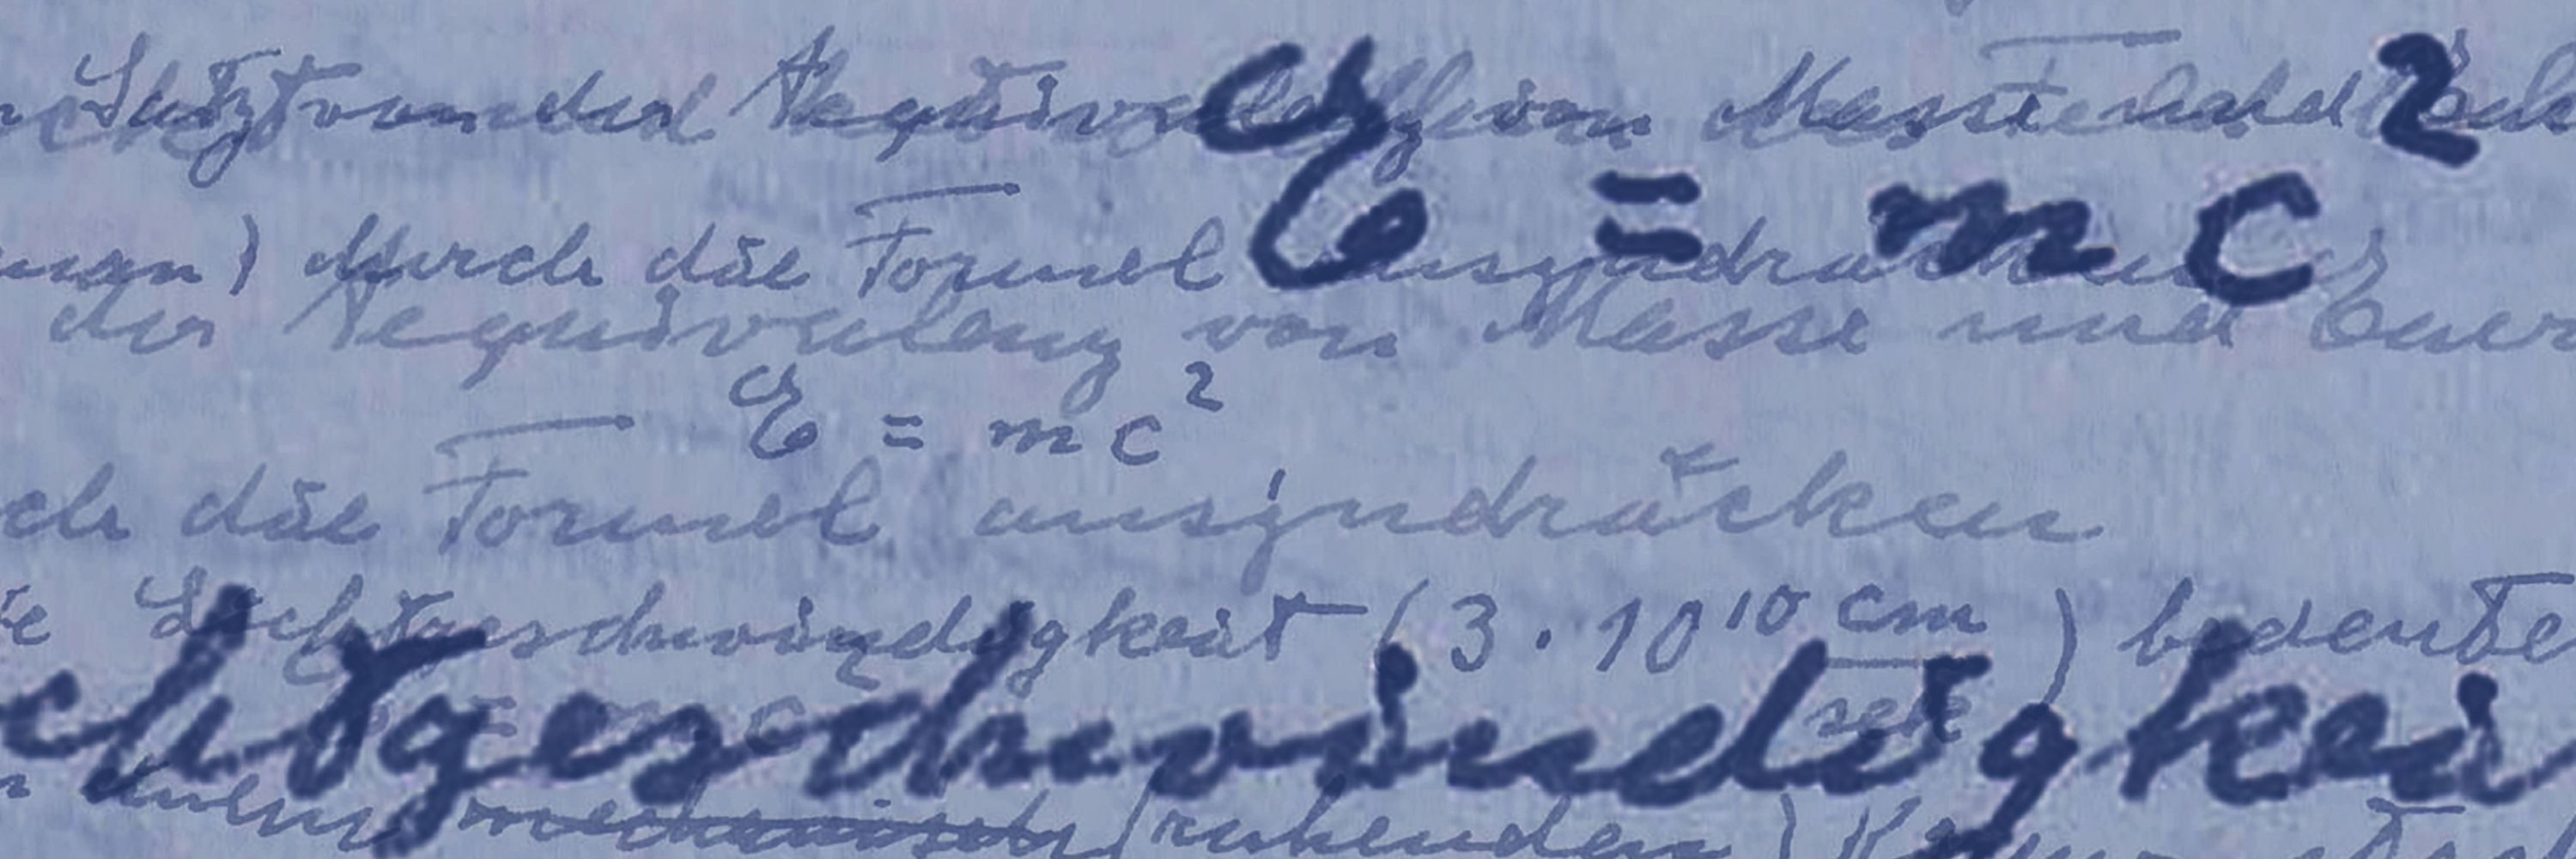 Satz von der Aequivalenz von Masse und
E = mc²
) durch die Formel auszudrücken
der Aequivalenz von Masse und Ener
E = mc²
ch die Formel auszudrücken
Lichtgeschwindigkeit (3 . 10¹⁰ cm/sek) bedeute
chtgeschwindigkei
mechanisch ruhenden